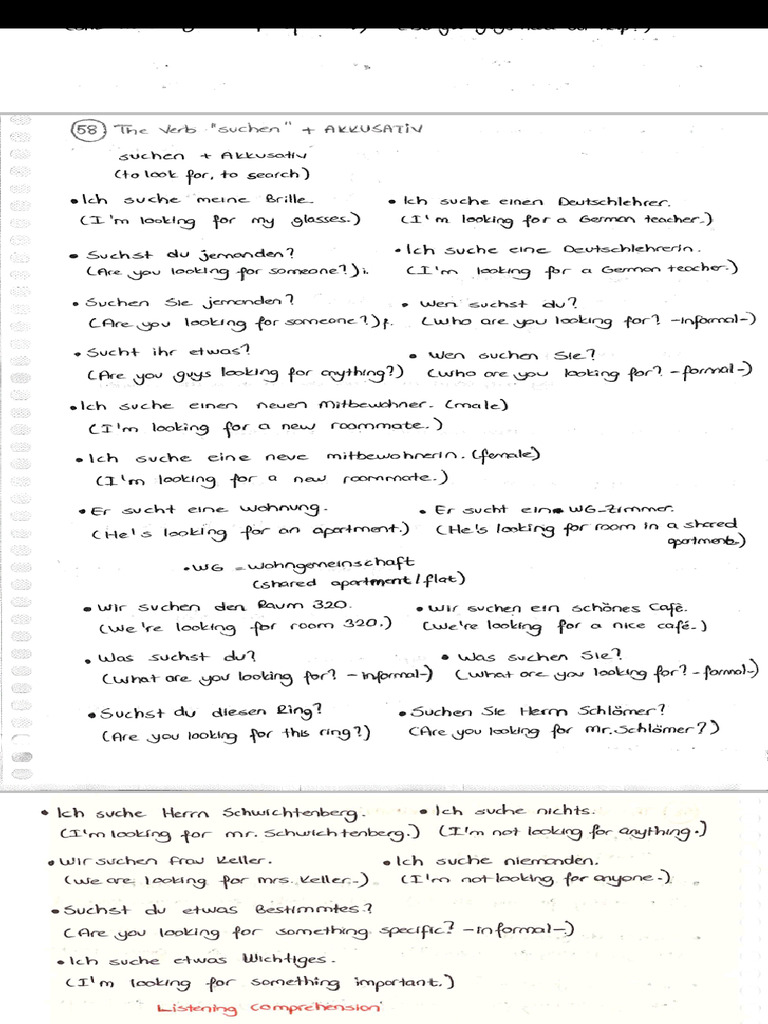 58 The Verb "suchen" + AKKUSATIV
suchen + Akkusativ
(to look for, to search)
• Ich suche meine Brille. • Ich suche einen Deutschlehrer.
(I'm looking for my glasses.) (I'm looking for a German teacher.)
• Suchst du jemanden? • Ich suche eine Deutschlehrerin.
(Are you looking for someone?) i. (I'm looking for a German teacher.)
• Suchen Sie jemanden? • Wen suchst du?
(Are you looking for someone?) f. (Who are you looking for? -informal-)
• Sucht ihr etwas? • Wen suchen Sie?
(Are you guys looking for anything?) (Who are you looking for? -formal-)
• Ich suche einen neuen Mitbewohner. (male)
(I'm looking for a new roommate.)
• Ich suche eine neue mitbewohnerin. (female)
(I'm looking for a new roommate.)
• Er sucht eine Wohnung. • Er sucht ein WG-Zimmer.
(He's looking for an apartment.) (He's looking for room in a shared
apartment.)
• WG = Wohngemeinschaft
(shared apartment / flat)
• Wir suchen den Raum 320. • Wir suchen ein schönes Café.
(We're looking for room 320.) (We're looking for a nice café.)
• Was suchst du? • Was suchen Sie?
(What are you looking for? -informal-) (What are you looking for? -formal-)
• Suchst du diesen Ring? • Suchen Sie Herrn Schlömer?
(Are you looking for this ring?) (Are you looking for mr. Schlömer?)
• Ich suche Herrn Schwichtenberg. • Ich suche nichts.
(I'm looking for mr. Schwichtenberg.) (I'm not looking for anything.)
• Wir suchen Frau Keller. • Ich suche niemanden.
(We are looking for mrs. Keller.) (I'm not looking for anyone.)
• Suchst du etwas Bestimmtes?
(Are you looking for something specific? -informal-)
• Ich suche etwas Wichtiges.
(I'm looking for something important.)
Listening comprehension